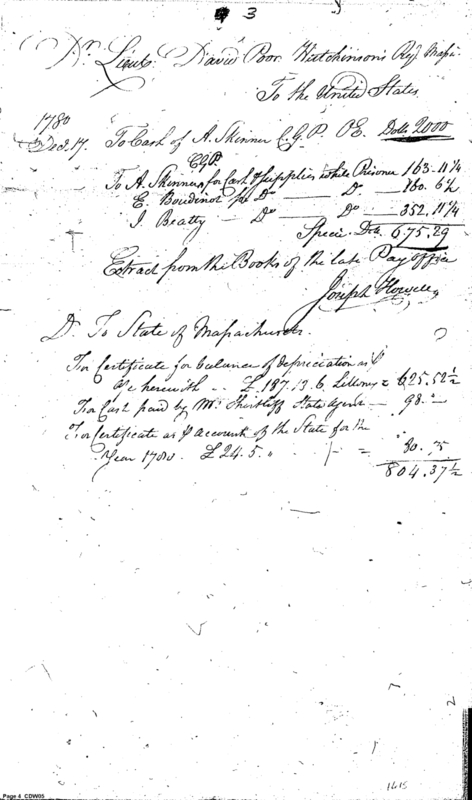 3
Dr. Lieut. David Poor Hutchinson's Regt. Massa.
To the United States
1780
Decr. 17. To Cash of A. Skinner C.G.P. OE. Dolls 2000
CGP.
To A. Skinner for Cash & Supplies while Prisoner 163.11¼
E. Boudinot for Do — Do — 160. 6½
J. Beatty — Do — Do — 352.11¼
Specie Dols. 675.29
Extract from the Books of the late Pay Office
Joseph Howell
Dr. To State of Massachusetts.
For Certificate for balance of depreciation as
herewith .. £.187.13.6 = 625.52½
For Cash paid by Mr. State Agent — 98. "
For Certificate as Account of the State for the
Year 1780. £24.5. " = 80.
804.37½
1615
Page 4 CDW05